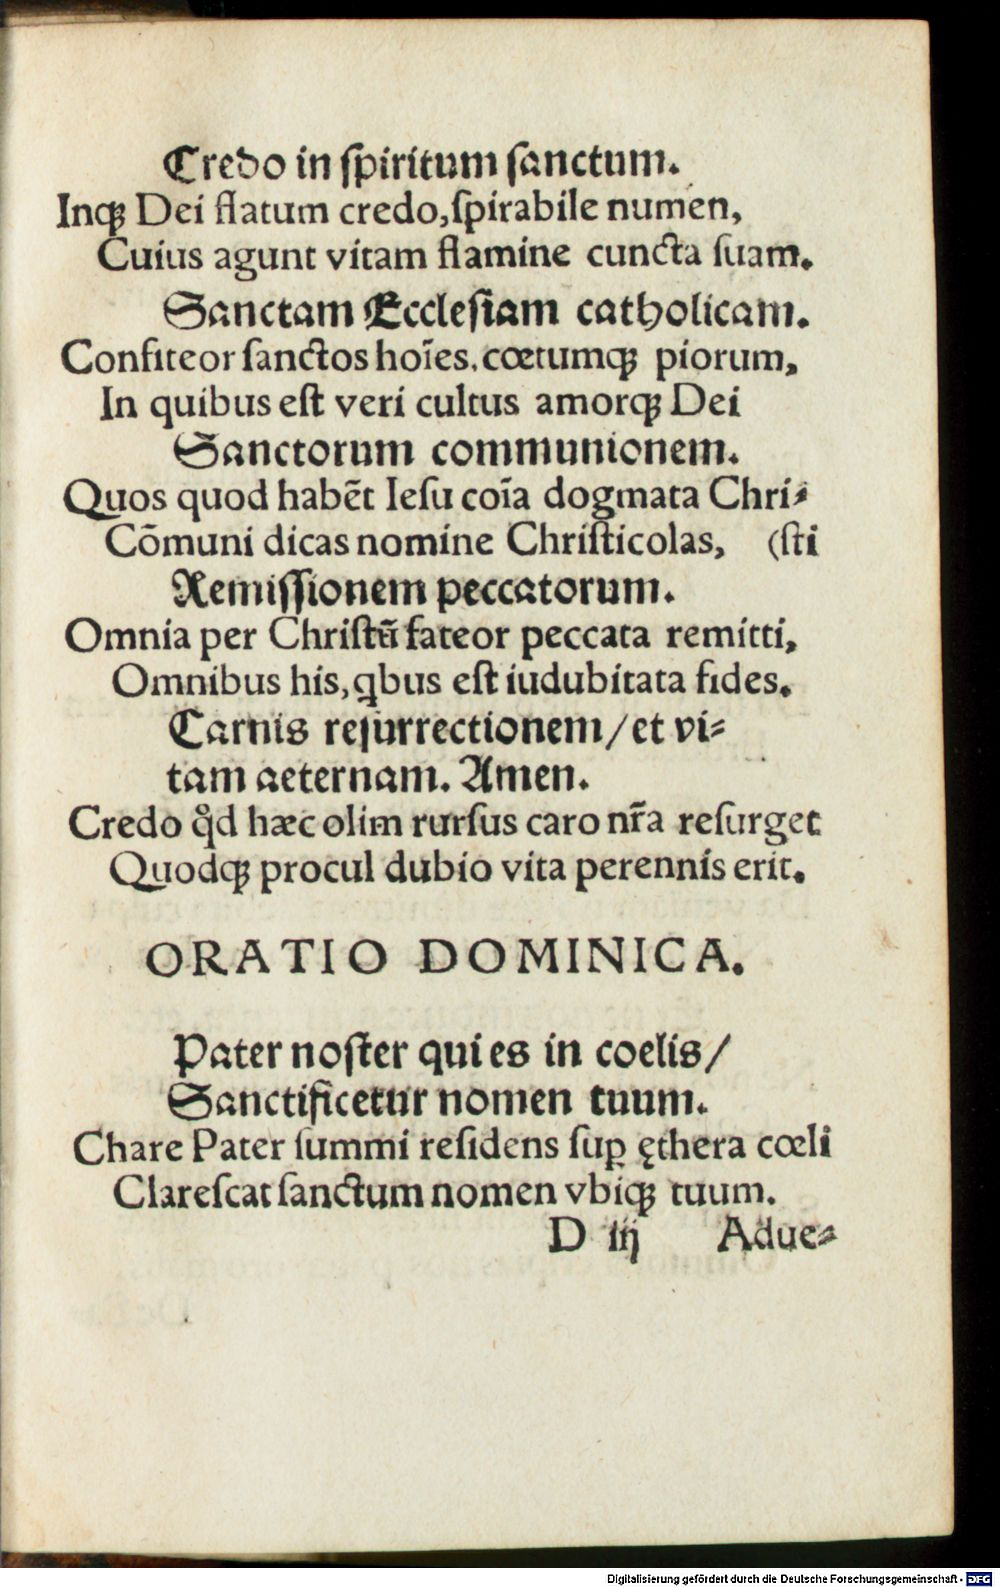 Credo in ſpiritum ſanctum.
Inqꝫ Dei flatum credo,ſpirabile numen,
Cuius agunt vitam flamine cuncta ſuam.
Sanctam Eccleſiam catholicam.
Confiteor ſanctos hoīes, cœtumqꝫ piorum,
In quibus eſt veri cultus amorqꝫ Dei
Sanctorum communionem.
Quos quod habēt Ieſu coīa dogmata Chri⸗
Cōmuni dicas nomine Chriſticolas, (ſti
Remiſſionem peccatorum.
Omnia per Chriſtū fateor peccata remitti,
Omnibus his, qbus eſt iudubitata fides.
Carnis reſurrectionem/et vi⸗
tam aeternam. Amen.
Credo qͦd hæc olim rurſus caro nr̄a reſurget
Quodqꝫ procul dubio vita perennis erit.
ORATIO DOMINICA.
Pater noſter qui es in coelis/
Sanctificetur nomen tuum.
Chare Pater ſummi reſidens ſuꝑ ęthera cœli
Clareſcat ſanctum nomen vbiqꝫ tuum.
D iij Adue⸗
Digitalisierung gefördert durch die Deutsche Forschungsgemeinschaft - DFG